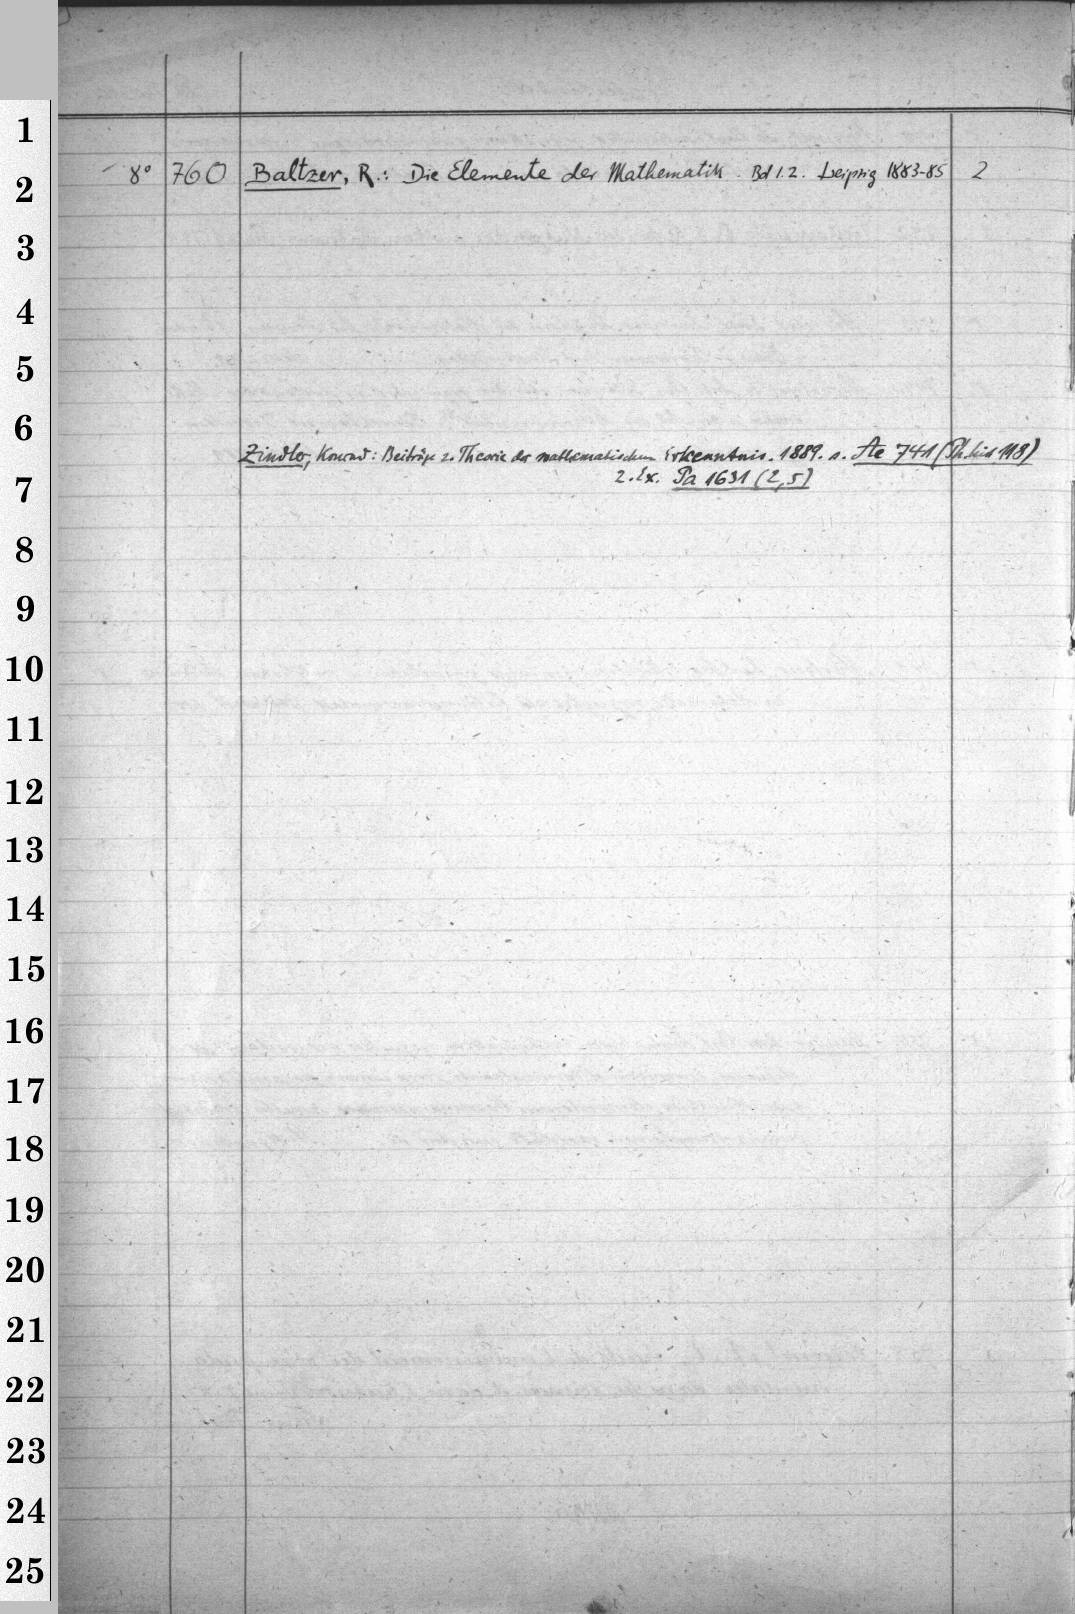 1
2
8° 760 Baltzer, R.: Die Elemente der Mathematik. Bd 1.2. Leipzig 1883-85 2
3
4
5
6
Zindler, Konrad: Beiträge z. Theorie der mathematischen Erkenntnis. 1889. s. Ae 741 (Ph.hist 118)
7
2. Ex. Pa 1631 (2,5)
8
9
10
11
12
13
14
15
16
17
18
19
20
21
22
23
24
25